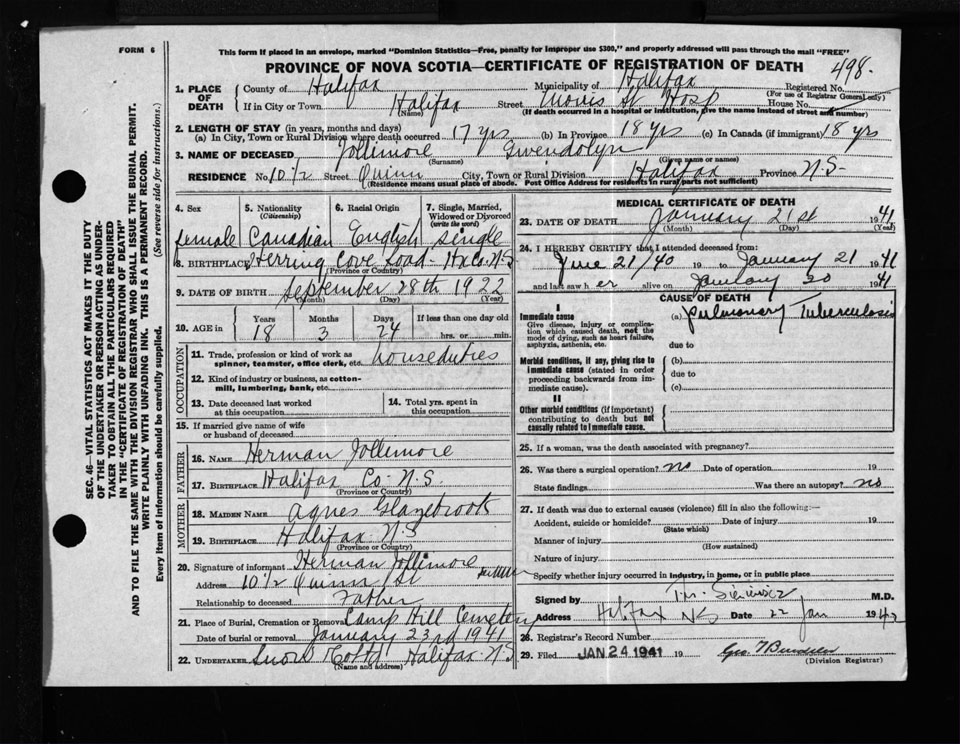 FORM 6
This form if placed in an envelope, marked "Dominion Statistics—Free, penalty for improper use $300," and properly addressed will pass through the mail "FREE"
PROVINCE OF NOVA SCOTIA—CERTIFICATE OF REGISTRATION OF DEATH
498.
1. PLACE OF DEATH
County of Halifax Municipality of Halifax Registered No.
(For use of Registrar General only)
If in City or Town Halifax Street Morris St Hosp House No.
(Name) (If death occurred in a hospital or institution, give the name instead of street and number)
2. LENGTH OF STAY (in years, months and days)
(a) In City, Town or Rural Division where death occurred 17 yrs (b) In Province 18 yrs (c) In Canada (if immigrant) 18 yrs
3. NAME OF DECEASED Jollimore Gwendolyn
(Surname) (Given name or names)
RESIDENCE No. 10 1/2 Street Quinn City, Town or Rural Division Halifax Province N.S.
(Residence means usual place of abode. Post Office Address for residents in rural parts not sufficient)
4. Sex 5. Nationality (Citizenship) 6. Racial Origin 7. Single, Married, Widowed or Divorced (write the word)
female Canadian English single
8. BIRTHPLACE Herring Cove Road Hx Co. N.S.
(Province or Country)
9. DATE OF BIRTH September 28th 1922
(Month) (Day) (Year)
10. AGE in Years Months Days If less than one day old
18 3 24 hrs. or min.
OCCUPATION
11. Trade, profession or kind of work as spinner, teamster, office clerk, etc. houseduties
12. Kind of industry or business, as cotton-mill, lumbering, bank, etc.
13. Date deceased last worked at this occupation
14. Total yrs. spent in this occupation
15. If married give name of wife or husband of deceased
FATHER
16. NAME Herman Jollimore
17. BIRTHPLACE Halifax Co. N.S.
(Province or Country)
MOTHER
18. MAIDEN NAME Agnes Glazebrook
19. BIRTHPLACE Halifax N.S
(Province or Country)
20. Signature of informant Herman Jollimore
Address 10 1/2 Quinn St
Relationship to deceased Father
21. Place of Burial, Cremation or Removal Camp Hill Cemetery
Date of burial or removal January 23rd 1941
22. UNDERTAKER Snow & Co Ltd Halifax N.S
(Name and address)
MEDICAL CERTIFICATE OF DEATH
23. DATE OF DEATH January 21st 1941
(Month) (Day) (Year)
24. I HEREBY CERTIFY that I attended deceased from:
June 21/40 19 to January 21 1941
and last saw h er alive on January 20 1941
CAUSE OF DEATH
I
Immediate cause
Give disease, injury or complication which caused death, not the mode of dying, such as heart failure, asphyxia, asthenia, etc.
(a) Pulmonary Tuberculosis
due to
Morbid conditions, if any, giving rise to immediate cause (stated in order proceeding backwards from immediate cause).
(b)
due to
(c)
II
Other morbid conditions (if important) contributing to death but not causally related to immediate cause.
25. If a woman, was the death associated with pregnancy?
26. Was there a surgical operation? no Date of operation 19
State findings Was there an autopsy? no
27. If death was due to external causes (violence) fill in also the following:—
Accident, suicide or homicide? Date of injury 19
(State which)
Manner of injury
(How sustained)
Nature of injury
Specify whether injury occurred in industry, in home, or in public place
Signed by M.D.
Address Halifax NS Date 22 Jan 194
28. Registrar's Record Number
29. Filed JAN 24 1941 19 Geo.
(Division Registrar)
SEC. 46—VITAL STATISTICS ACT MAKES IT THE DUTY
OF THE UNDERTAKER OR PERSON ACTING AS UNDER-
TAKER TO OBTAIN ALL THE PARTICULARS REQUIRED
IN THE "CERTIFICATE OF REGISTRATION OF DEATH"
AND TO FILE THE SAME WITH THE DIVISION REGISTRAR WHO SHALL ISSUE THE BURIAL PERMIT.
WRITE PLAINLY WITH UNFADING INK. THIS IS A PERMANENT RECORD.
Every item of information should be carefully supplied. (See reverse side for instructions.)